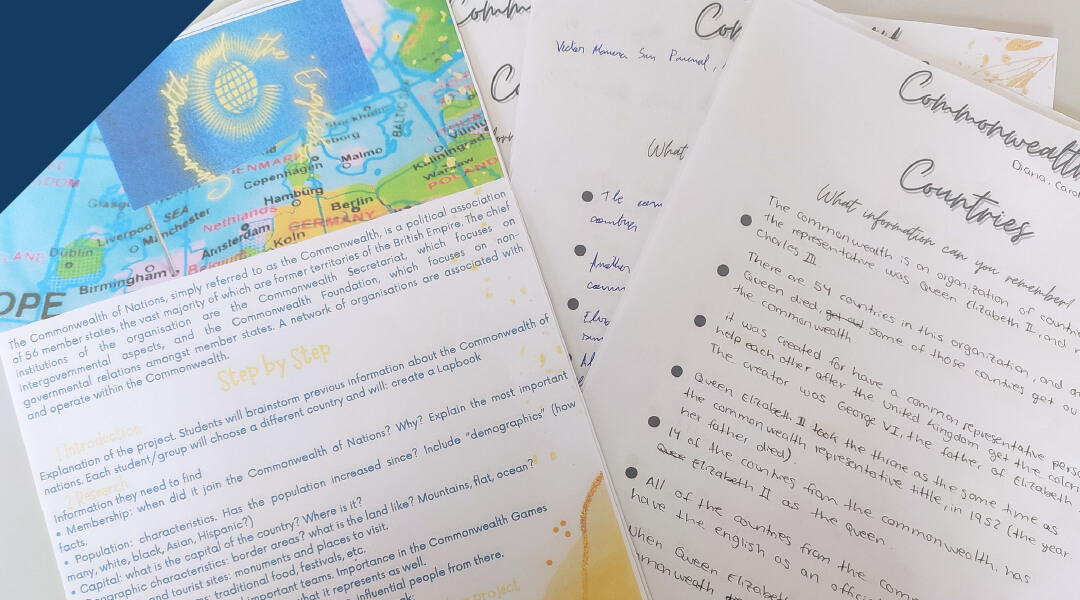 Commonwealth the English
Stockholm
BALTIC
borg
DENMARK
Malmo
Vilniu
Copenhagen
Kaliningrad
Glasgo
SEA
Hamburg
Warsaw
POLAND
Liverpoo
Manchester
Netherlands
Berlin
GERMANY
Dublin
Amsterdam
Koln
Birmingham
Belgium
OPE
The Commonwealth of Nations, simply referred to as the Commonwealth, is a political association
of 56 member states, the vast majority of which are former territories of the British Empire. The chief
institutions of the organisation are the Commonwealth Secretariat, which focuses on
intergovernmental aspects, and the Commonwealth Foundation, which focuses on non-
governmental relations amongst member states. A network of organisations are associated with
and operate within the Commonwealth.
Step by Step
1.Introduction
Explanation of the project. Students will brainstorm previous information about the Commonwealth of
nations. Each student/group will choose a different country and will: create a Lapbook
2.Research
Information they need to find
• Membership: when did it join the Commonwealth of Nations? Why? Explain the most important
facts.
• Population: characteristics. Has the population increased since? Include "demographics" (how
many, white, black, Asian, Hispanic?)
• Capital: what is the capital of the country? Where is it?
graphic characteristics: border areas? what is the land like? Mountains, flat, ocean?
and tourist sites: monuments and places to visit.
ms: traditional food, festivals, etc.
important teams. Importance in the Commonwealth Games
what it represents as well.
influential people from there.
project
Comm
Com
What
The com
countrys
Another
Commonwealth
Diana, Carol
Countries
What information can you remember?
The commonwealth is an organization of countri
the representative was Queen Elizabeth II and n
Charles III.
There are 54 countries in this organization, and a
Queen died, some of those countries get ou
the commonwealth.
it was created for have a common representative pers
help each other after the united Kingdom get the colon
The creator was George VI, the father of Elizabeth
Queen Elizabeth II took the throne as the same time as
the commonwealth representative tittle, in 1952 (the year
her father died).
14 of the countries from the commonwealth, has
Elizabeth II as the queen.
All of the countries from the comm
have the english as an offici
When Queen Elizabeth
mmonwealth